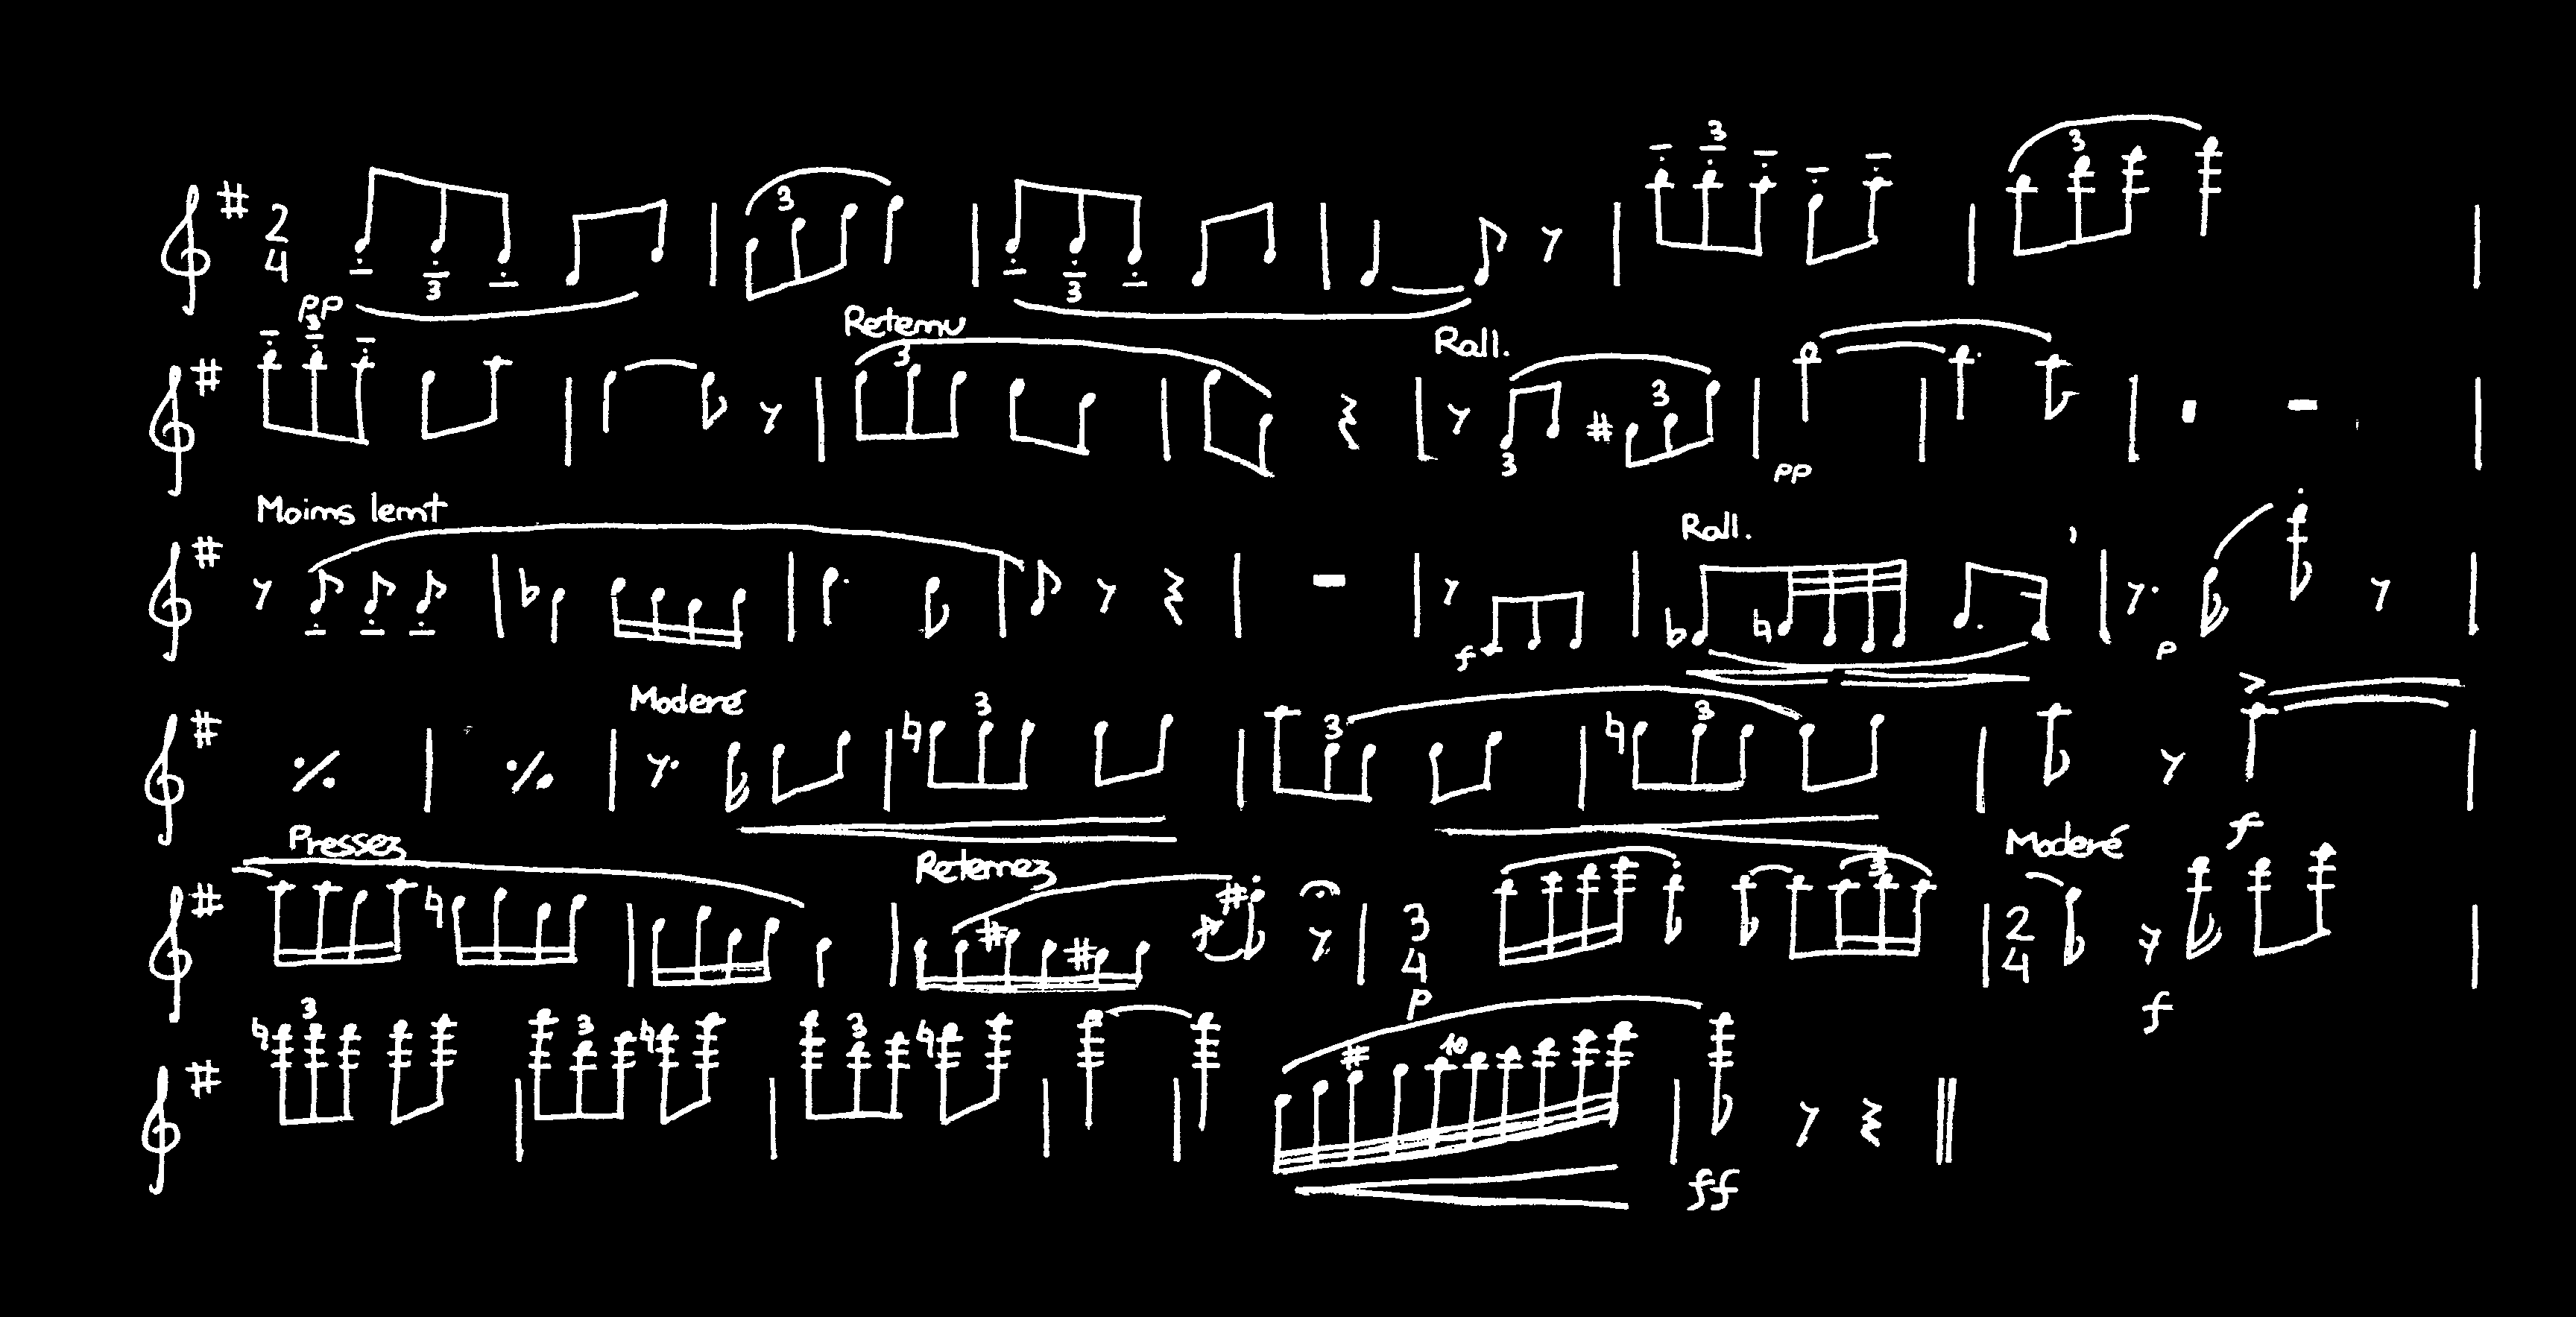 2 4 3 3 3 3 3
pp
3 Retenu 3 Rall. 3 3 pp
Moins lent f Rall. p
Moderé 3 3 3 f
Pressez Retenez 3 4 p 3 Moderé 2 4 f
3 3 3 10 ff